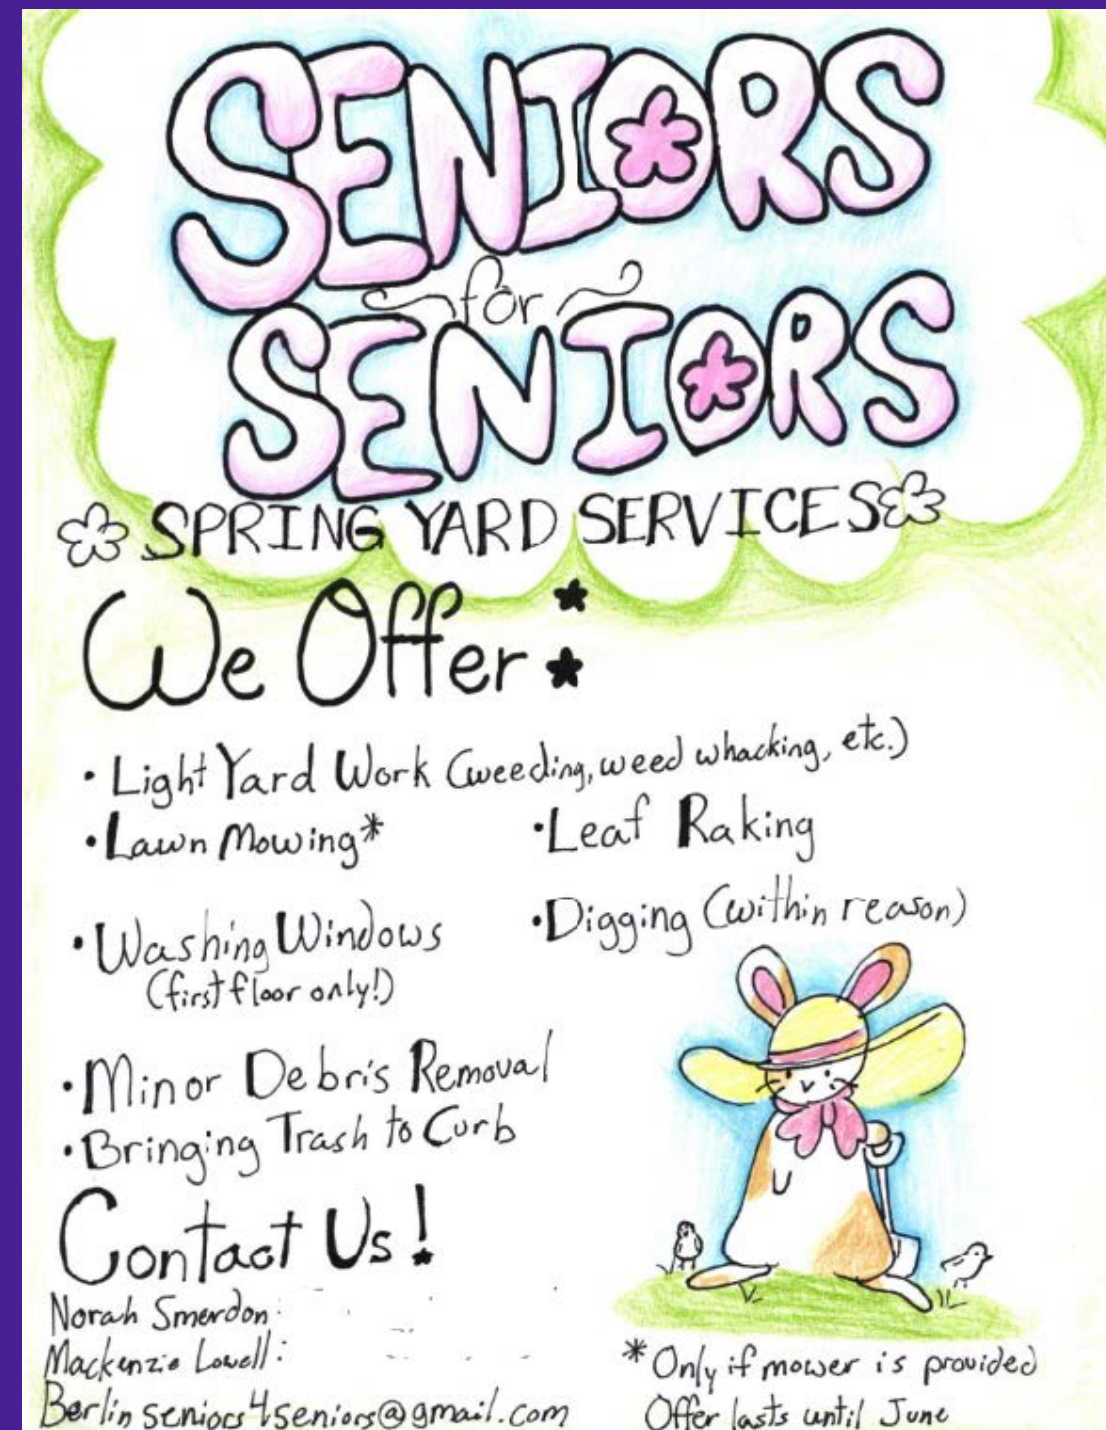 SENIORS
for
SENIORS
SPRING YARD SERVICES
We Offer:
• Light Yard Work (weeding, weed whacking, etc.)
• Lawn Mowing*
• Leaf Raking
• Washing Windows
(first floor only!)
• Digging (within reason)
• Minor Debris Removal
• Bringing Trash to Curb
Contact Us!
Norah Smerdon:
Mackenzie Lowell:
Berlinseniors4seniors@gmail.com
*Only if mower is provided
Offer lasts until June